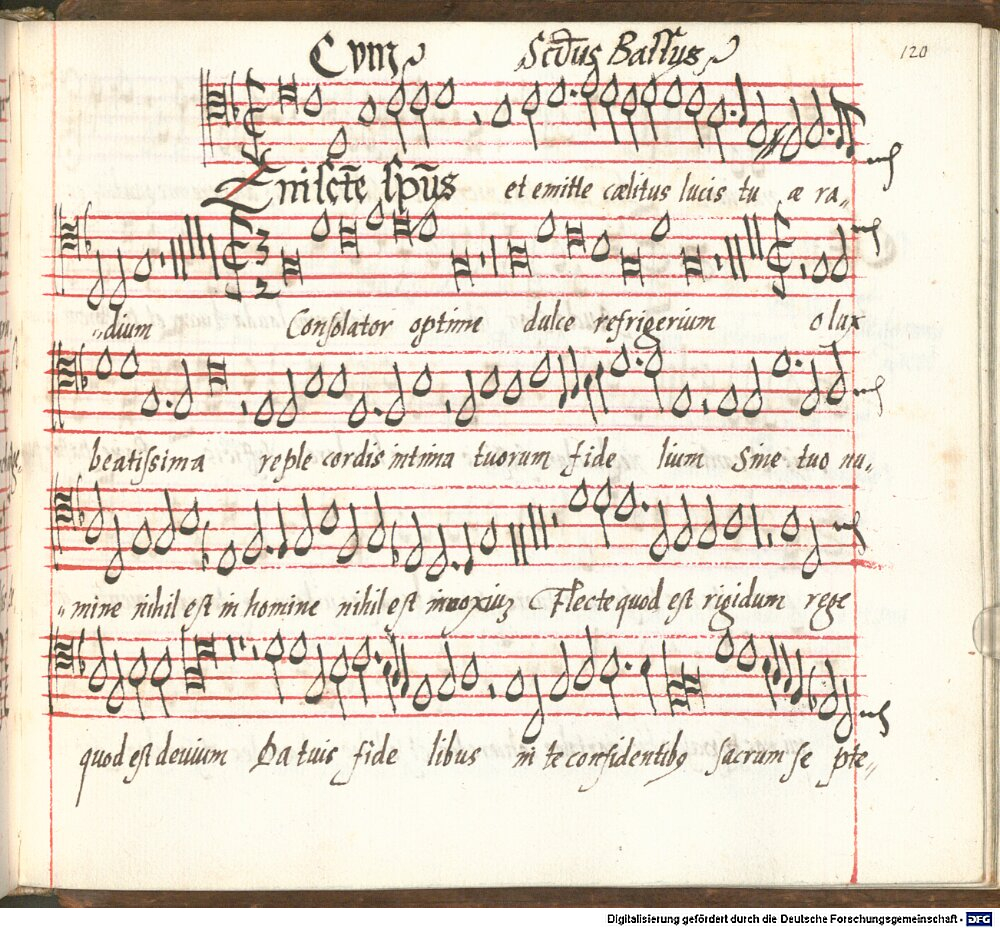 Cum Scd̄us Bassus
120
Eni sct̄e sp̄us et emitte cælitus lucis tu æ ra„
„dium Consolator optime dulce refrigerium o lux
beatissima reple cordis intima tuorum fide lium Sine tuo nu„
„mine nihil est in homine nihil est innoxiuȝ Flecte quod est rigidum rege
quod est devium Da tuis fide libus in te confidentibꝯ sacrum se pte„
Digitalisierung gefördert durch die Deutsche Forschungsgemeinschaft - DFG